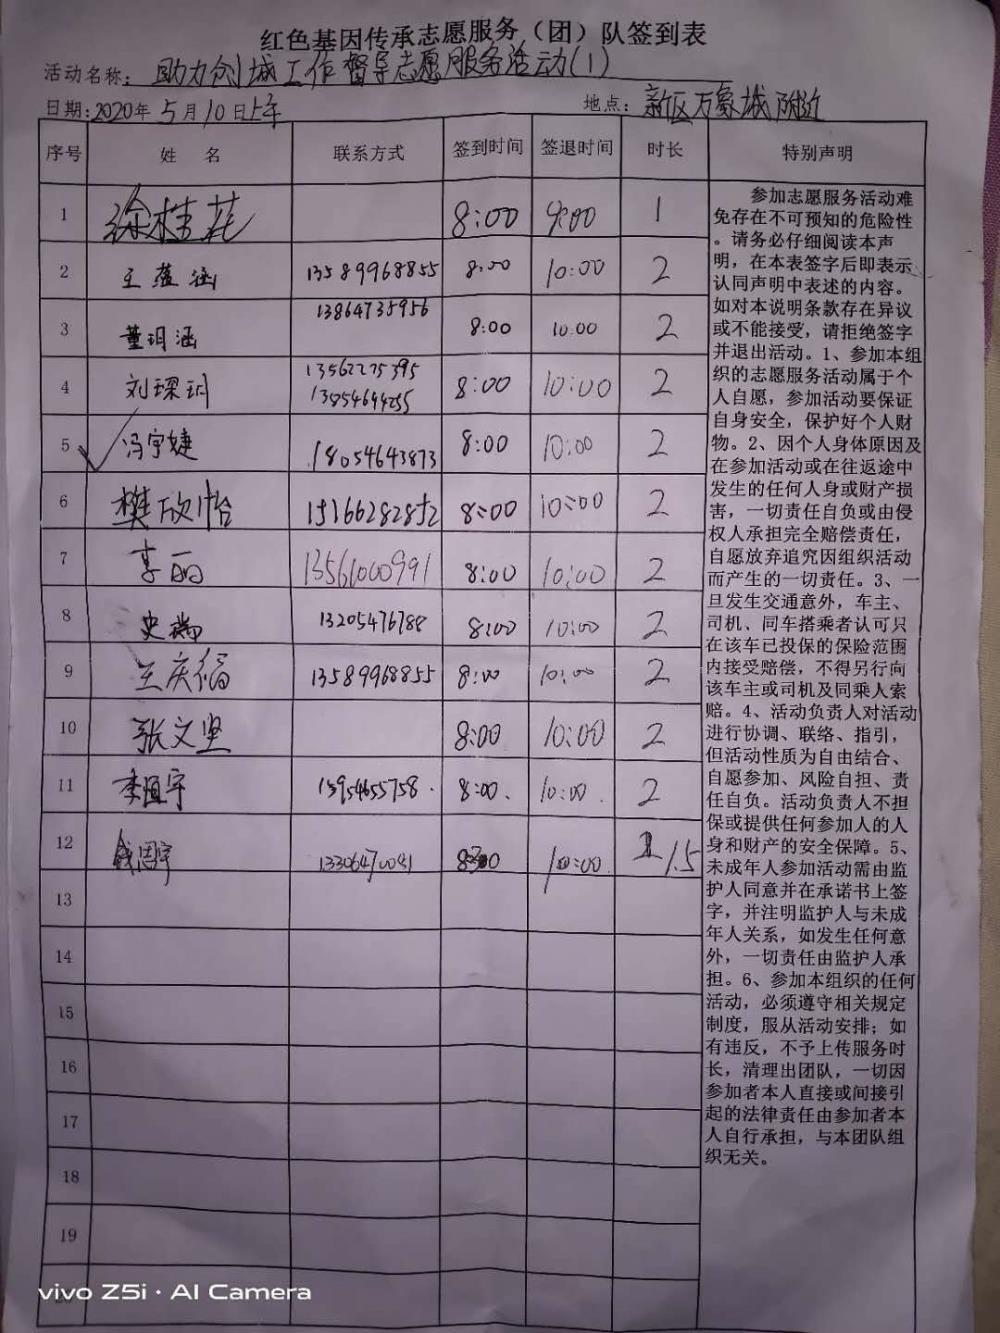 红色基因传承志愿服务（团）队签到表
活动名称：助力创城工作督导志愿服务活动(1)
日期：2020年5月10日上午 地点：新区万象城附近
序号 姓 名 联系方式 签到时间 签退时间 时长 特别声明
1 徐桂花 8:00 9:00 1
2 王蕴涵 13589968855 8:00 10:00 2
3 董玥涵 13864735956 8:00 10:00 2
4 刘琛玥 13562275395 8:00 10:00 2
5 冯宇婕 18054643873 8:00 10:00 2
6 樊欣怡 15166282852 8:00 10:00 2
7 李丽 13561000991 8:00 10:00 2
8 史瑞 13205476788 8:00 10:00 2
9 王庆福 13589968855 8:00 10:00 2
10 张文坚 8:00 10:00 2
11 李恒宇 15954655758 8:00 10:00 2
12 13306470081 10:00 1.5
13
14
15
16
17
18
19
参加志愿服务活动难
免存在不可预知的危险性
。请务必仔细阅读本声
明，在本表签字后即表示
认同声明中表述的内容。
如对本说明条款存在异议
或不能接受，请拒绝签字
并退出活动。1、参加本组
织的志愿服务活动属于个
人自愿，参加活动要保证
自身安全，保护好个人财
物。2、因个人身体原因及
在参加活动或在往返途中
发生的任何人身或财产损
害，一切责任自负或由侵
权人承担完全赔偿责任，
自愿放弃追究因组织活动
而产生的一切责任。3、一
旦发生交通意外，车主、
司机、同车搭乘者认可只
在该车已投保的保险范围
内接受赔偿，不得另行向
该车主或司机及同乘人索
赔。4、活动负责人对活动
进行协调、联络、指引，
但活动性质为自由结合、
自愿参加、风险自担、责
任自负。活动负责人不担
保或提供任何参加人的人
身和财产的安全保障。5、
未成年人参加活动需由监
护人同意并在承诺书上签
字，并注明监护人与未成
年人关系，如发生任何意
外，一切责任由监护人承
担。6、参加本组织的任何
活动，必须遵守相关规定
制度，服从活动安排；如
有违反，不予上传服务时
长，清理出团队，一切因
参加者本人直接或间接引
起的法律责任由参加者本
人自行承担，与本团队组
织无关。
vivo Z5i · AI Camera